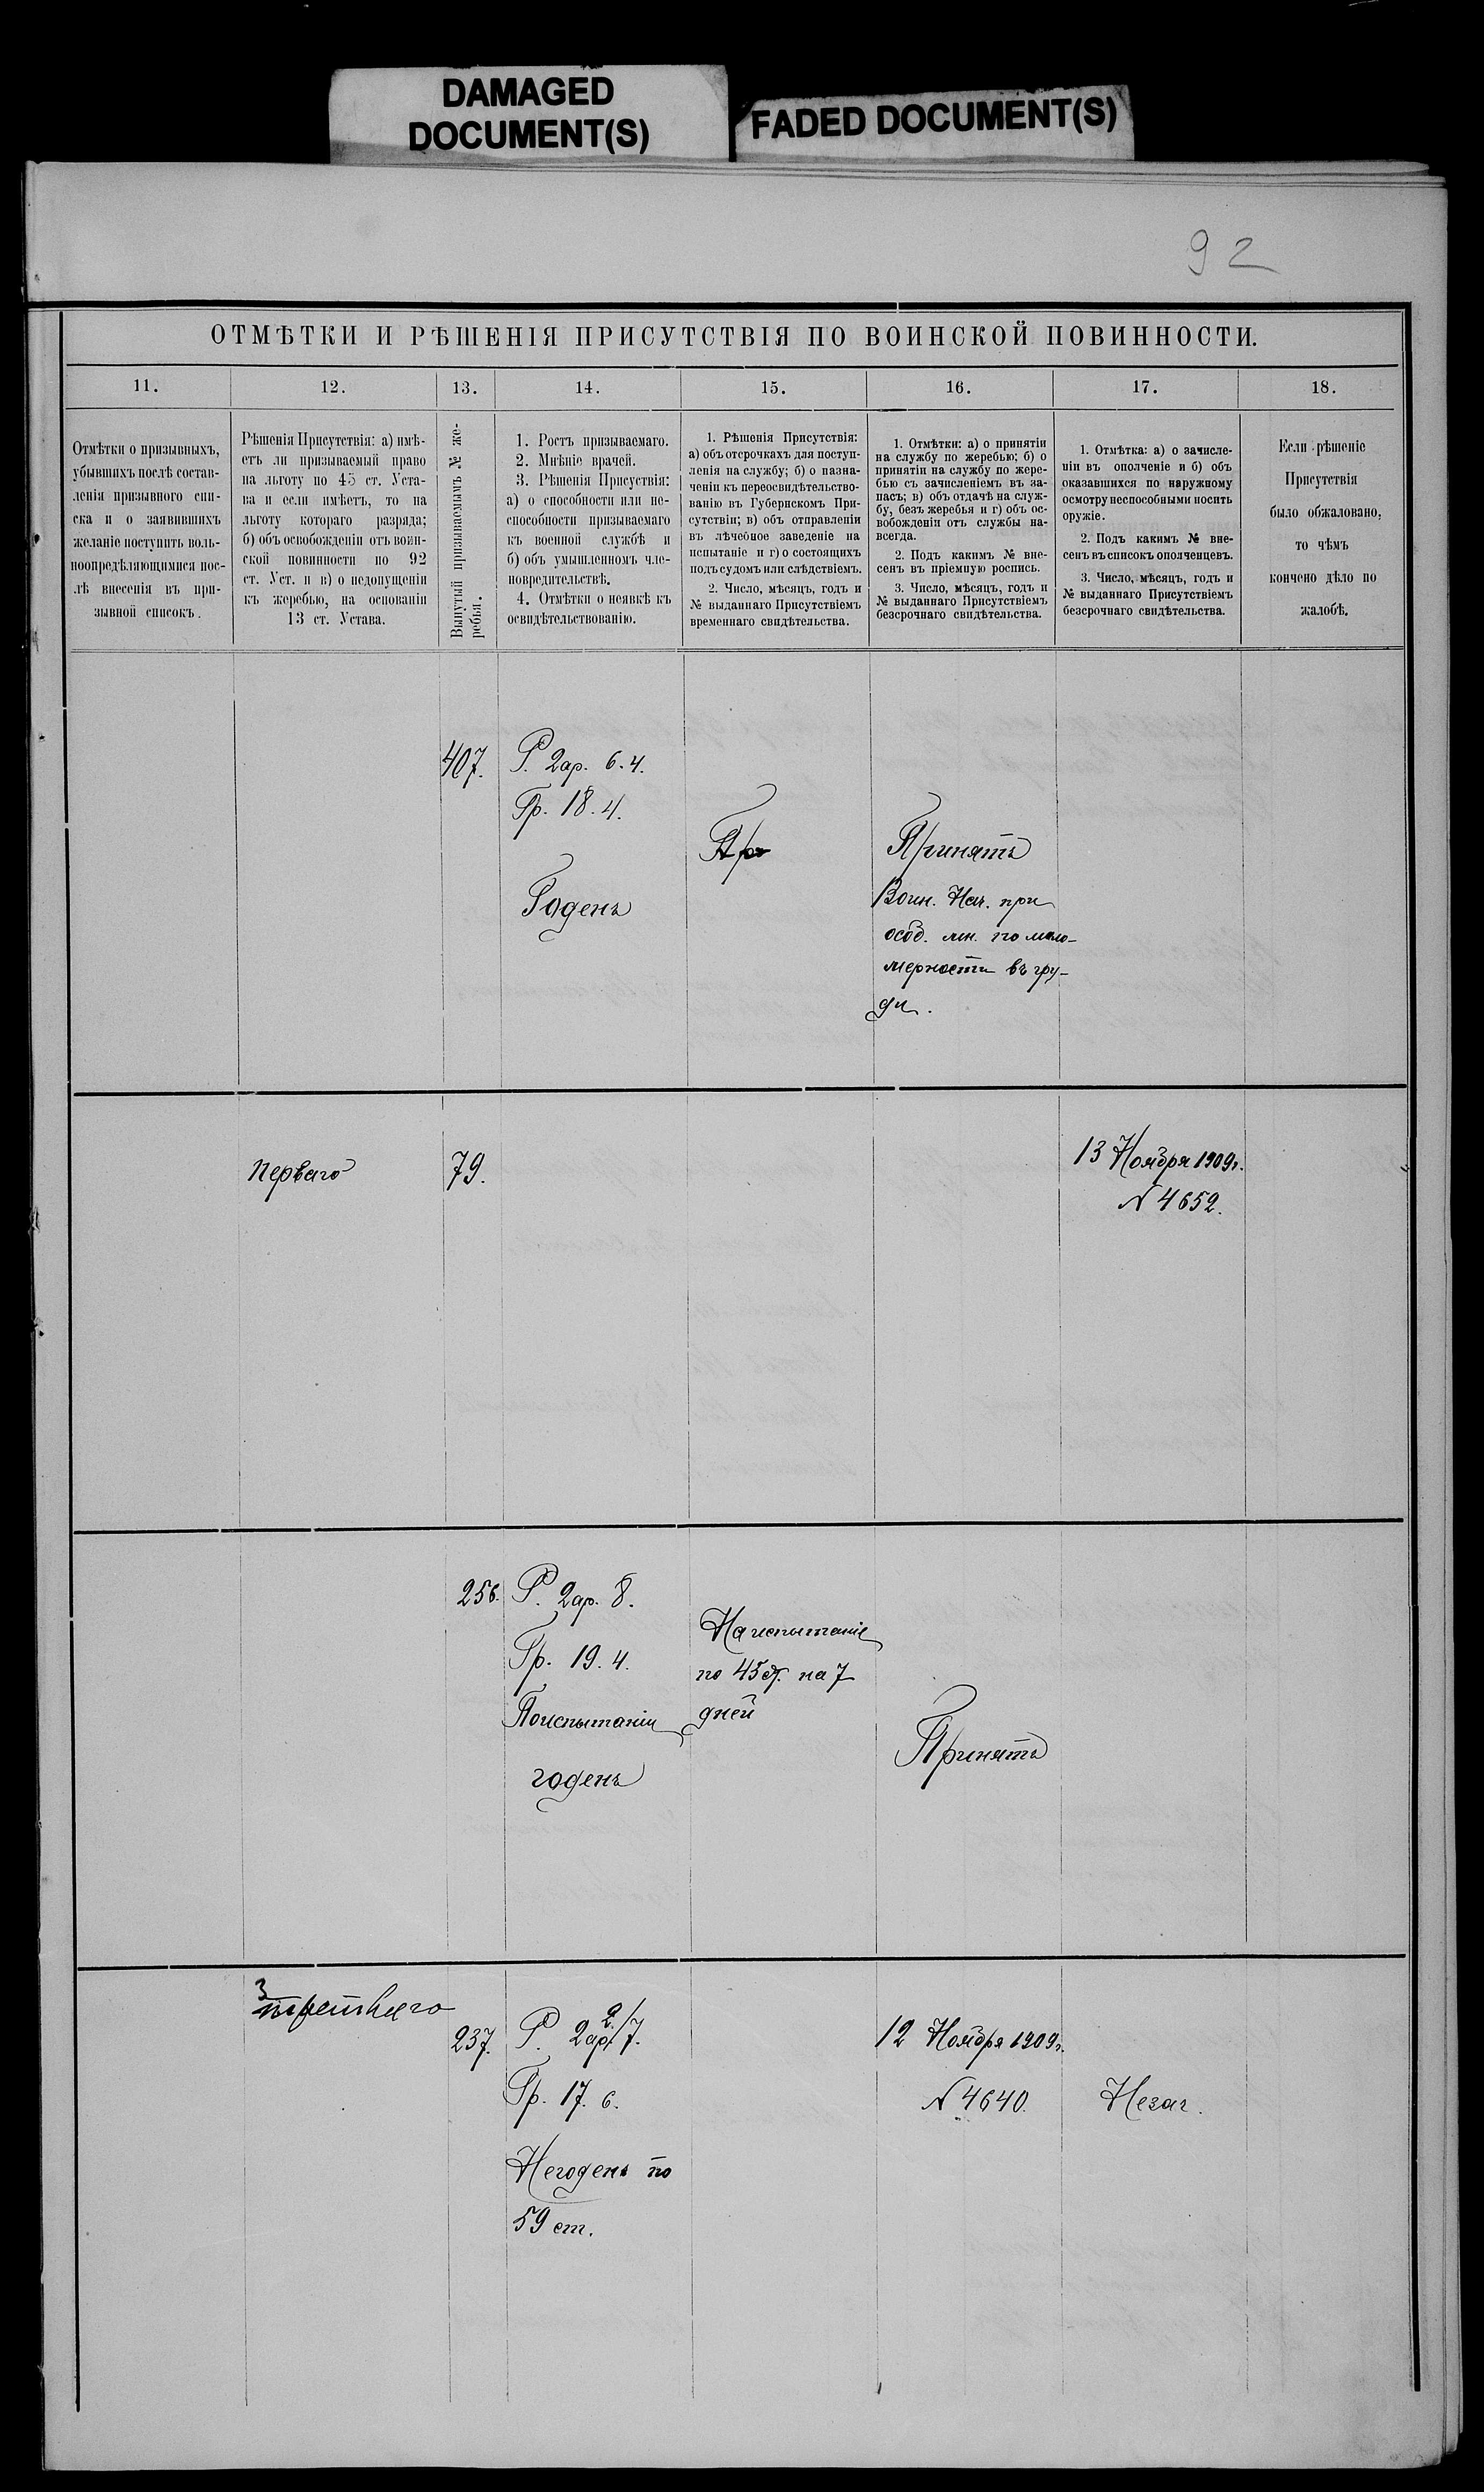 DAMAGED
DOCUMENT(S)
FADED DOCUMENT(S)
92
ОТМѢТКИ И РѢШЕНІЯ ПРИСУТСТВІЯ ПО ВОИНСКОЙ ПОВИННОСТИ.
11.
12.
13.
14.
15.
16.
17.
18.
Отмѣтки о призывныхъ,
убывшихъ послѣ состав-
ленія призывного спи-
ска и о заявившихъ
желаніе поступить воль-
ноопредѣляющимися пос-
лѣ внесенія въ при-
зывной списокъ.
Рѣшенія Присутствія: а) имѣ-
етъ ли призываемый право
на льготу по 45 ст. Уста-
ва и если имѣетъ, то на
льготу котораго разряда;
б) объ освобожденіи отъ воин-
ской повинности по 92
ст. Уст. и в) о недопущеніи
къ жеребью, на основаніи
13 ст. Устава.
Вынутый призываемымъ № же-
ребья.
1. Ростъ призываемаго.
2. Мнѣніе врачей.
3. Рѣшенія Присуствія:
а) о способности или не-
способности призываемаго
къ военной службѣ и
б) объ умышленномъ чле-
новредительствѣ.
4. Отмѣтки о неявкѣ къ
освидѣтельствованію.
1. Рѣшенія Присутствія:
а) объ отсрочкахъ для поступ-
ленія на службу; б) о назна-
ченіи къ переосвидѣтельство-
ванію въ Губернскомъ При-
сутствіи; в) объ отправленіи
въ лѣчебное заведеніе на
испытаніе и г) о состоящихъ
подъ судомъ или слѣдствіемъ.
2. Число, мѣсяцъ, годъ и
№ выданнаго Присутствіемъ
временнаго свидѣтельства.
1. Отмѣтки: а) о принятіи
на службу по жеребью; б) о
принятіи на службу по жере-
бью съ зачисленіемъ въ за-
пасъ; в) объ отдачѣ на служ-
бу, безъ жеребья и г) объ ос-
вобожденіи отъ службы на-
всегда.
2. Подъ какимъ № вне-
сенъ въ пріемную роспись.
3. Число, мѣсяцъ, годъ и
№ выданнаго Присутствіемъ
безсрочнаго свидѣтельства.
1. Отмѣтка: а) о зачисле-
ніи въ ополченіе и б) объ
оказавшихся по наружному
осмотру неспособными носить
оружіе.
2. Подъ какимъ № вне-
сенъ въ списокъ ополченцевъ.
3. Число, мѣсяцъ, годъ и
№ выданнаго Присутствіемъ
безсрочнаго свидѣтельства.
Если рѣшеніе
Присутствія
было обжаловано,
то чѣмъ
кончено дѣло по
жалобѣ.
407.
Р. 2ар. 6.4.
Гр. 18.4.
Годенъ
Пр
Принятъ
Воин. Нач. при
особ. мн. по мало-
мерности въ гру-
ди.
перваго
79.
13 Ноября 1909г.
N 4652.
256.
Р. 2ар. 8.
Гр. 19.4.
По испытаніи
годенъ
На испытаніе
по 45 ст. на 7
дней
Принятъ
3
третьяго
237.
Р. 2ар. 2/7.
Гр. 17.6.
Негоденъ по
59 ст.
12 Ноября 1909г.
N 4640.
Незач.